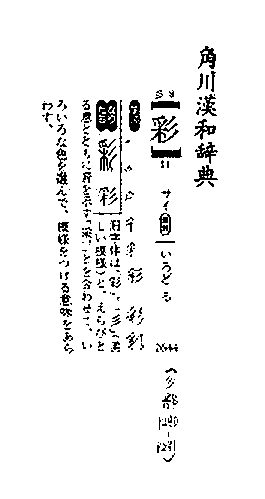 角川漢和辞典
【彩】
11
サイ いろどる
(彡部
彩 彩
旧字体は、彩。彡(美
しい模様)と、えらびと
る意とともに音を示す「采」とを合わせて、い
ろいろな色を選んで、模様をつける意味をあら
わす。